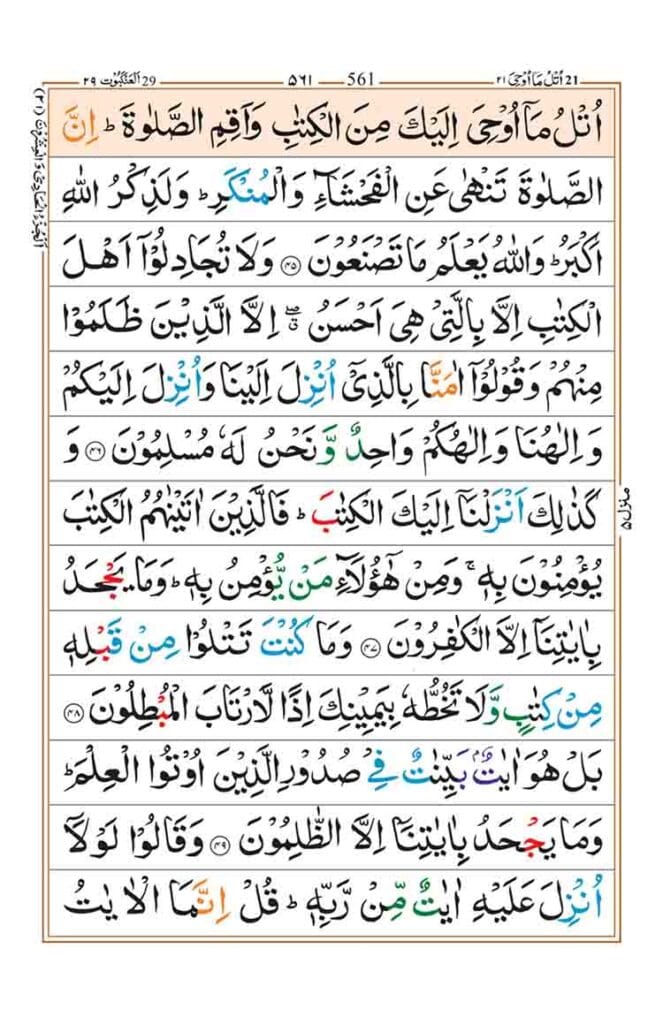 21 اُتْلُ مَاۤ اُوْحِیَ ۲۱ 561 ۵۶۱ 29 اَلْعَنْكَبُوْت ۲۹
اُتْلُ مَاۤ اُوْحِیَ اِلَیْكَ مِنَ الْكِتٰبِ وَ اَقِمِ الصَّلٰوةَ ؕ اِنَّ
الصَّلٰوةَ تَنْهٰی عَنِ الْفَحْشَآءِ وَ الْمُنْكَرِ ؕ وَ لَذِكْرُ اللّٰهِ
اَكْبَرُ ؕ وَ اللّٰهُ یَعْلَمُ مَا تَصْنَعُوْنَ ﴿۴۵﴾ وَ لَا تُجَادِلُوْۤا اَهْلَ
الْكِتٰبِ اِلَّا بِالَّتِیْ هِیَ اَحْسَنُ ۖۗ اِلَّا الَّذِیْنَ ظَلَمُوْا
مِنْهُمْ وَ قُوْلُوْۤا اٰمَنَّا بِالَّذِیْۤ اُنْزِلَ اِلَیْنَا وَ اُنْزِلَ اِلَیْكُمْ
وَ اِلٰهُنَا وَ اِلٰهُكُمْ وَاحِدٌ وَّ نَحْنُ لَهٗ مُسْلِمُوْنَ ﴿۴۶﴾ وَ
كَذٰلِكَ اَنْزَلْنَاۤ اِلَیْكَ الْكِتٰبَ ؕ فَالَّذِیْنَ اٰتَیْنٰهُمُ الْكِتٰبَ
یُؤْمِنُوْنَ بِهٖ ۚ وَ مِنْ هٰۤؤُلَآءِ مَنْ یُّؤْمِنُ بِهٖ ؕ وَ مَا یَجْحَدُ
بِاٰیٰتِنَاۤ اِلَّا الْكٰفِرُوْنَ ﴿۴۷﴾ وَ مَا كُنْتَ تَتْلُوْا مِنْ قَبْلِهٖ
مِنْ كِتٰبٍ وَّ لَا تَخُطُّهٗ بِیَمِیْنِكَ اِذًا لَّارْتَابَ الْمُبْطِلُوْنَ ﴿۴۸﴾
بَلْ هُوَ اٰیٰتٌۢ بَیِّنٰتٌ فِیْ صُدُوْرِ الَّذِیْنَ اُوْتُوا الْعِلْمَ ؕ
وَ مَا یَجْحَدُ بِاٰیٰتِنَاۤ اِلَّا الظّٰلِمُوْنَ ﴿۴۹﴾ وَ قَالُوْا لَوْ لَاۤ
اُنْزِلَ عَلَیْهِ اٰیٰتٌ مِّنْ رَّبِّهٖ ؕ قُلْ اِنَّمَا الْاٰیٰتُ
اَلْجُزْءُ الْحَادِیْ وَ الْعِشْرُوْنَ (۲۱)
منزل ۵